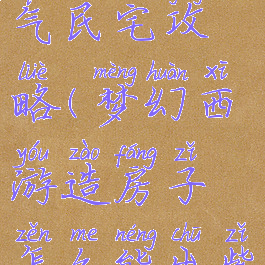 气民宅攻
lüè mèng huàn xī
略(梦幻西
yóu zào fáng zǐ
游造房子
zěn me néng chū zǐ
怎么能出紫